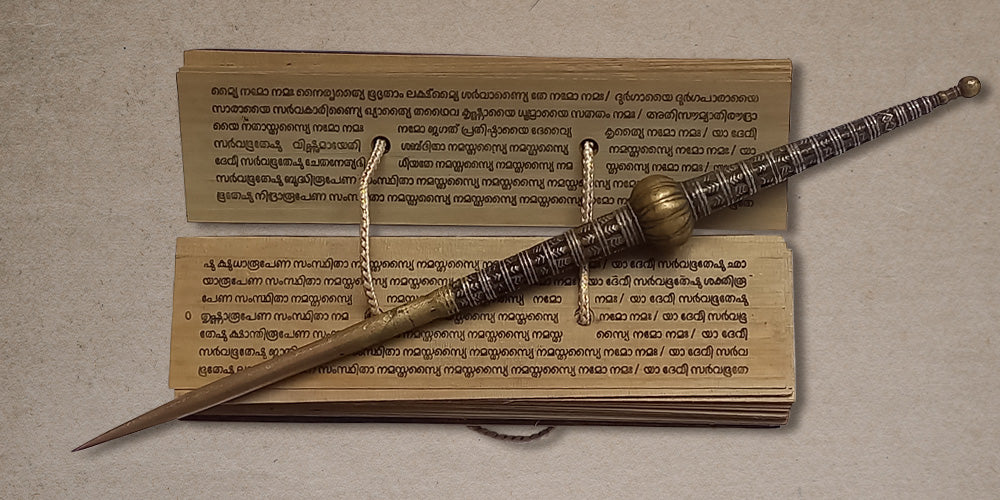 മ്യൈ നമോ നമഃ നൈരൃത്യൈ ഭൂഭൃതാം ലക്ഷ്മ്യൈ ശർവാണ്യൈ തേ നമോ നമഃ/ ദുർഗായൈ ദുർഗപാരായൈ
സാരായൈ സർവകാരിണ്യൈ ഖ്യാത്യൈ തഥൈവ കൃഷ്ണായൈ ധൂമ്രായൈ സതതം നമഃ/ അതിസൌമ്യാതിരൌദ്രാ
യൈ നതാസ്തസ്യൈ നമോ നമഃ നമോ ജഗത് പ്രതിഷ്ഠായൈ ദേവ്യൈ കൃത്യൈ നമോ നമഃ/ യാ ദേവീ
സർവഭൂതേഷു വിഷ്ണുമായേതി ശബ്ദിതാ നമസ്തസ്യൈ നമസ്തസ്യൈ നമസ്തസ്യൈ നമോ നമഃ/ യാ
ദേവീ സർവഭൂതേഷു ചേതനേത്യഭി ധീയതേ നമസ്തസ്യൈ നമസ്തസ്യൈ നമ സ്തസ്യൈ നമോ നമഃ/
സർവഭൂതേഷു ബുദ്ധിരൂപേണ സംസ്ഥിതാ നമസ്തസ്യൈ നമസ്തസ്യൈ നമസ്തസ്യൈ നമോ
ഭൂതേഷു നിദ്രാരൂപേണ സംസ്ഥിതാ നമസ്തസ്യൈ നമസ്തസ്യൈ നമസ്തസ്യൈ
ഷു ക്ഷുധാരൂപേണ സംസ്ഥിതാ നമസ്തസ്യൈ നമസ്തസ്യൈ നമഃ/ യാ ദേവീ സർവഭൂതേഷു ഛാ
യാരൂപേണ സംസ്ഥിതാ നമസ്തസ്യൈ നമസ്തസ്യൈ യാ ദേവീ സർവഭൂതേഷു ശക്തിരൂ
പേണ സംസ്ഥിതാ നമസ്തസ്യൈ നമസ്തസ്യൈ നമോ നമഃ/ യാ ദേവീ സർവഭൂതേഷു
തൃഷ്ണാരൂപേണ സംസ്ഥിതാ നമ നമസ്തസ്യൈ നമോ നമഃ/ യാ ദേവീ സർവഭൂ
തേഷു ക്ഷാന്തിരൂപേണ നമസ്തസ്യൈ നമസ്തസ്യൈ നമസ്ത സ്യൈ നമോ നമഃ/ യാ ദേവീ
സർവഭൂതേഷു സ്ഥിതാ നമസ്തസ്യൈ നമസ്തസ്യൈ നമസ്തസ്യൈ നമോ നമഃ/ യാ ദേവീ സർവ
ഭൂതേഷു സംസ്ഥിതാ നമസ്തസ്യൈ നമസ്തസ്യൈ നമസ്തസ്യൈ നമോ നമഃ/ യാ ദേവീ സർവഭൂതേ